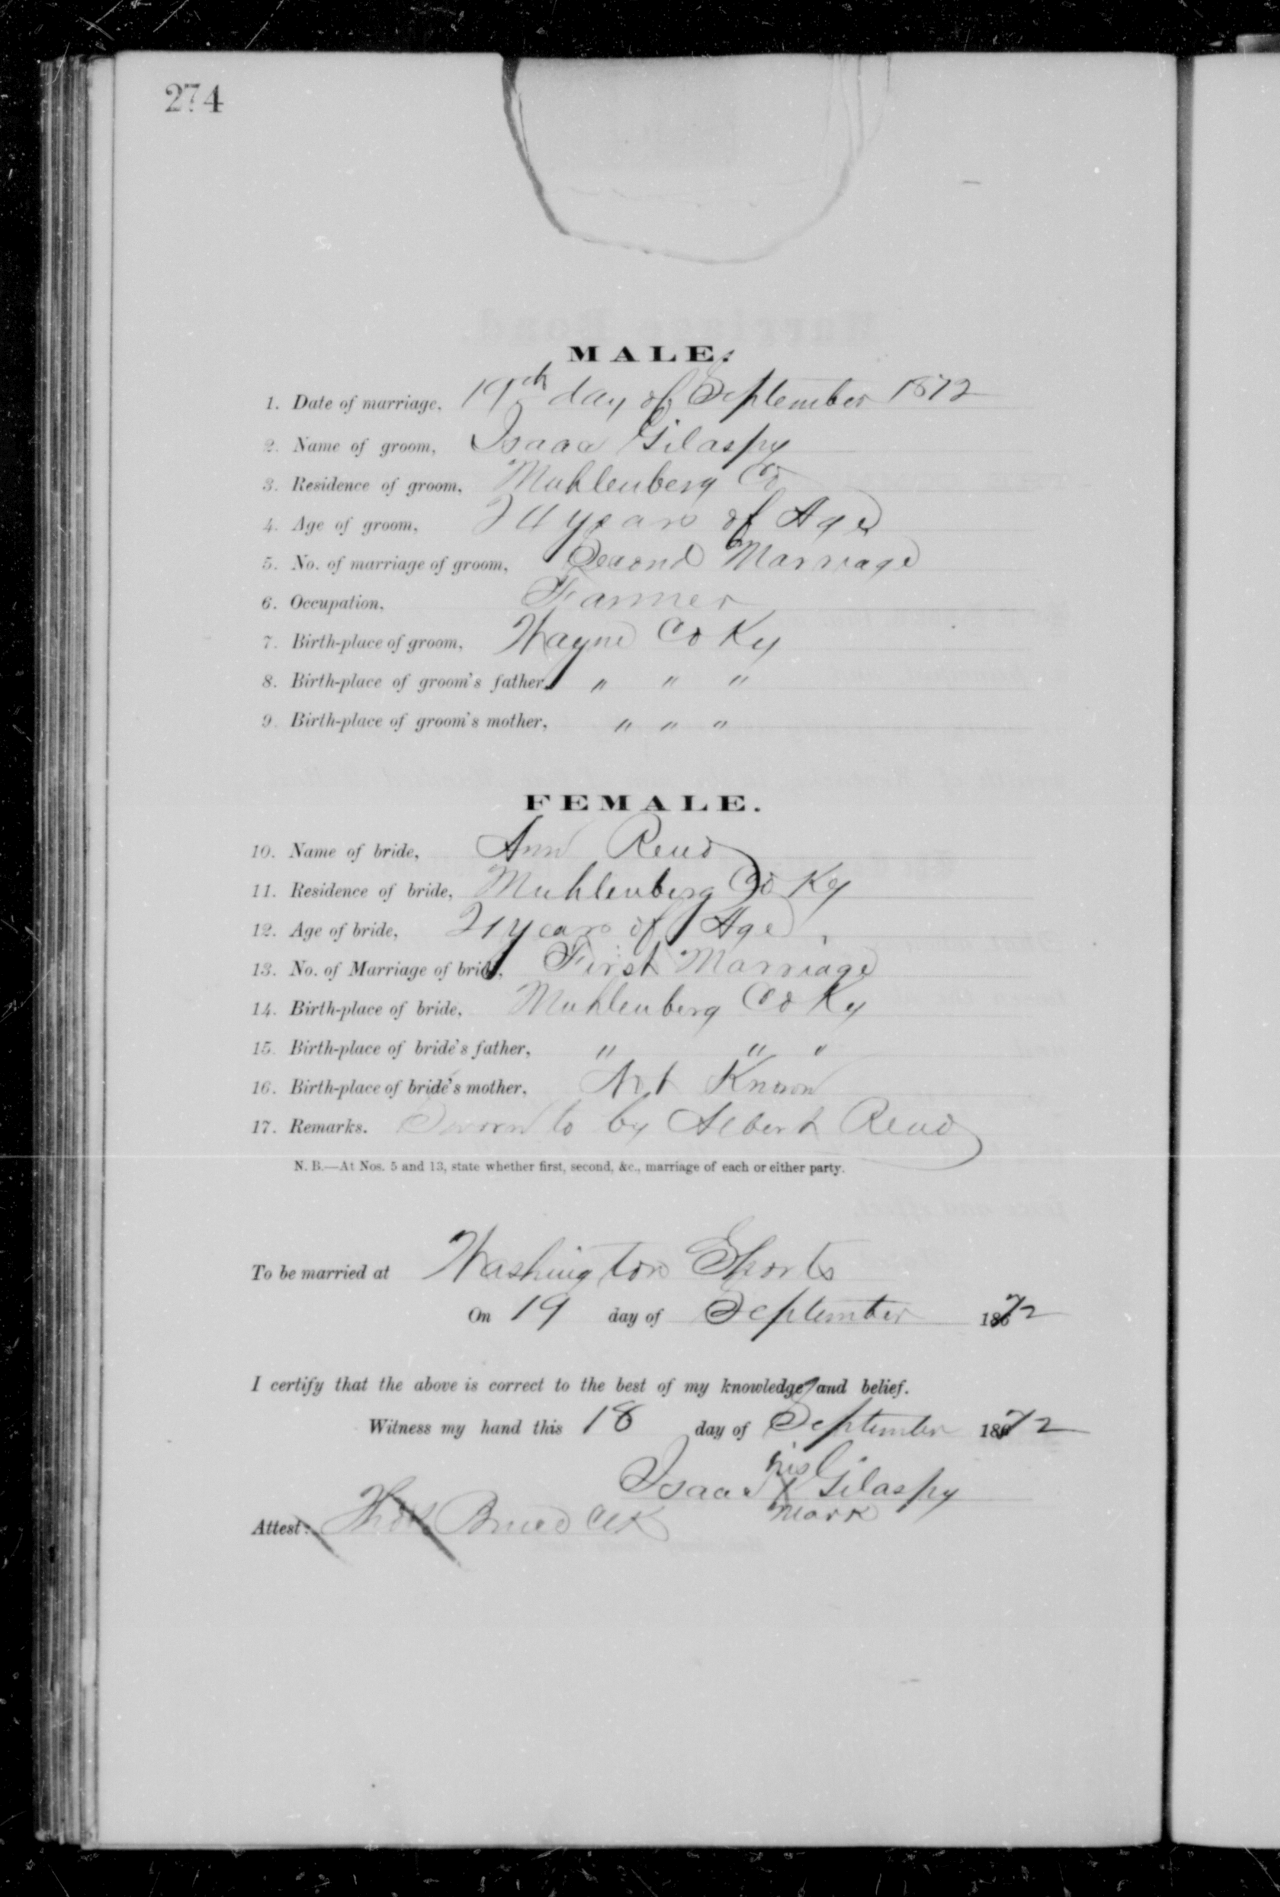 274
MALE.
1. Date of marriage, 19th day of September 1872
2. Name of groom, Isaac Gilaspy
3. Residence of groom, Muhlenberg Co
4. Age of groom, years of Age
5. No. of marriage of groom, Second Marriage
6. Occupation, Farmer
7. Birth-place of groom, Wayne Co Ky
8. Birth-place of groom's father, " " "
9. Birth-place of groom's mother, " " "
FEMALE.
10. Name of bride, Ann
11. Residence of bride, Muhlenberg Co Ky
12. Age of bride, 21 years of Age
13. No. of Marriage of bride, First Marriage
14. Birth-place of bride, Muhlenberg Co Ky
15. Birth-place of bride's father, " " "
16. Birth-place of bride's mother, Not Known
17. Remarks. Sworn to by Albert
N. B.—At Nos. 5 and 13, state whether first, second, &c., marriage of each or either party.
To be married at Washington
On 19 day of September 1872
I certify that the above is correct to the best of my knowledge and belief.
Witness my hand this 18 day of September 1872
his
Isaac X Gilaspy
mark
Attest: Clk